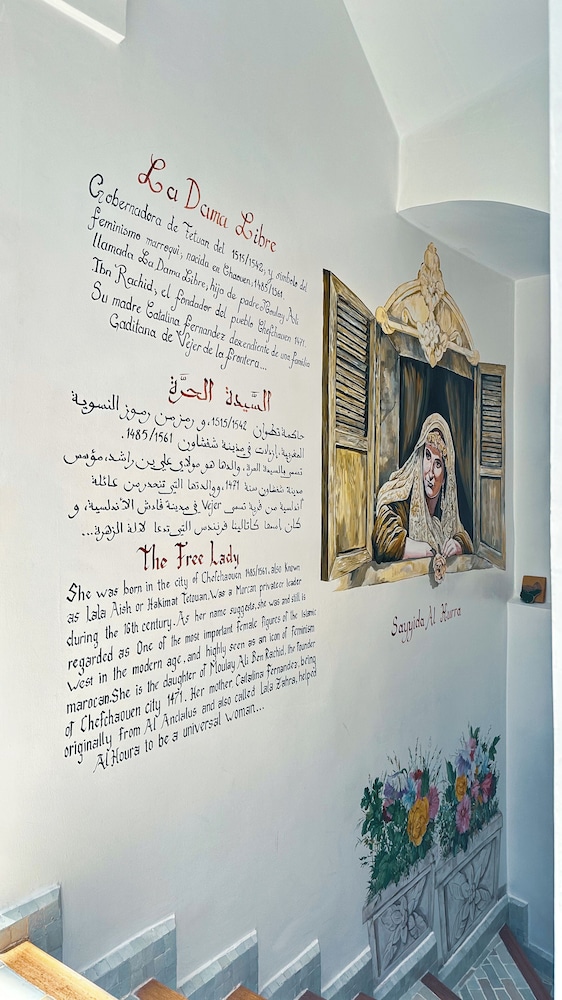 La Dama Libre
Gobernadora de Tetuan del 1515/1542, y simbolo del
feminismo marroqui, nacida en Chaouen, 1485/1561.
llamada La Dama Libre, hija de padre Moulay Ali
Ibn Rachid, el fondador del pueblo Chefchaouen 1471.
Su madre Catalina fernandez descendiente de una familia
Gaditana de Vejer de la frontera...
السَّيدة الحرَّة
حاكمة تطوان 1515/1542، و رمز من رموز النسوية
المغربية، ازدادت في مدينة شفشاون 1485/1561.
تسمى بالسيدة الحرة، والدها هو مولاي علي بن راشد، مؤسس
مدينة شفشاون سنة 1471، ووالدتها التي تنحدر من عائلة
أندلسية من قرية تسمى Vejer في مدينة قادش الأندلسية، و
كان اسمها كاتالينا فرنندس التي تدعا لالة الزهرة...
The Free Lady
She was born in the city of Chefchaouen 1485/1561, also known
as Lala Aish or Hakimat Tetouan. Was a Morcan privateer leader
during the 16th century. As her name suggests, she was and still is
regarded as One of the most important female figures of the Islamic
West in the modern age, and highly seen as an icon of feminism
marocan. She is the daughter of Moulay Ali Ben Rachid, the founder
of Chefchaouen city 1471. Her mother Catalina Fernandez, being
originally from Al Andalus and also called Lala Zahra, helped
Al Houra to be a universal woman...
Sayyida Al Hourra